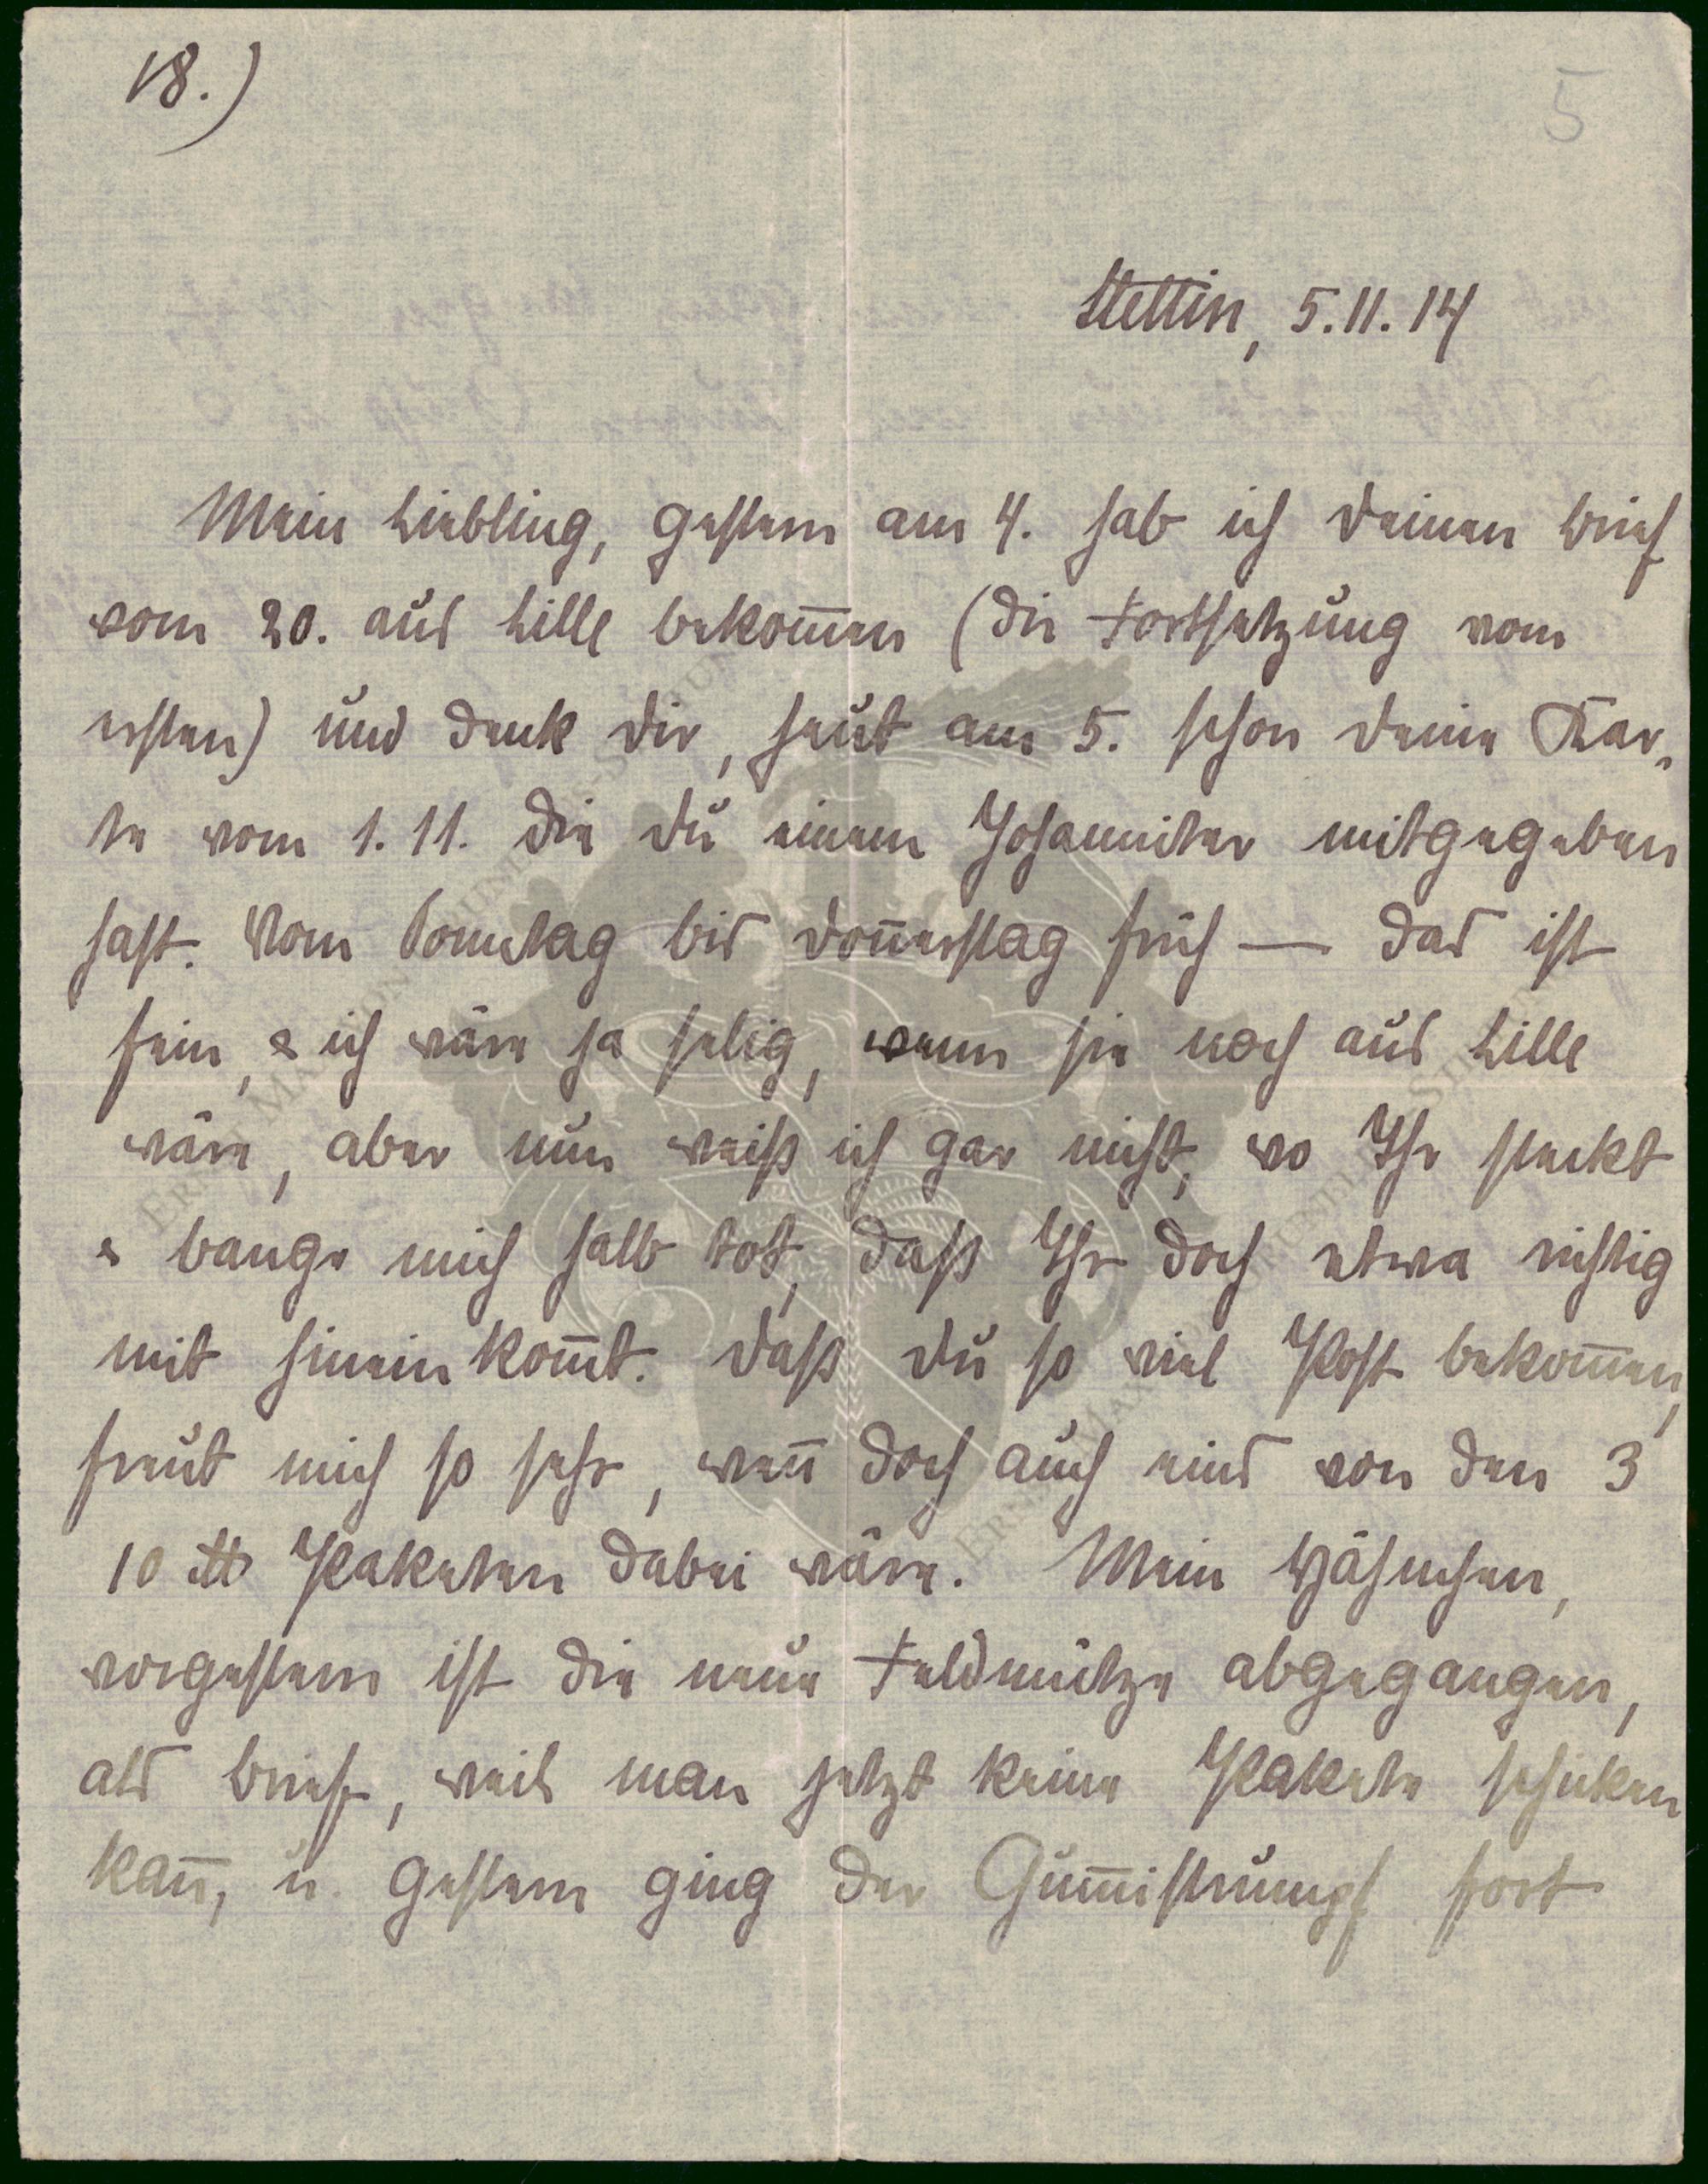 18.)
5
Stettin, 5.11.14
Mein Liebling, gestern am 4. hab ich Deinen Brief
vom 20. aus Lille bekom̄en (die Fortsetzung vom
ersten) und dank Dir, heut am 5. schon Deine Kar-
te vom 1.11. die Du einem Johanniter mitgegeben
hast. Vom Sonntag bis Don̄erstag früh — das ist
fein, & ich wäre ja selig, wenn sie noch aus Lille
wäre, aber nun weiß ich gar nicht, wo Ihr steckt
& bange mich halb tot, daß Ihr doch etwa richtig
mit hinein kom̄t. Daß Du so viel Post bekom̄en,
freut mich so sehr, wen̄ doch auch eins von den 3
10 ℔ Paketen dabei wäre. Mein Hähnchen,
vorgestern ist die neue Feldmütze abgegangen,
als Brief, weil man jetzt keine Pakete schicken
kan̄, u. gestern ging der Gum̄istrumpf fort